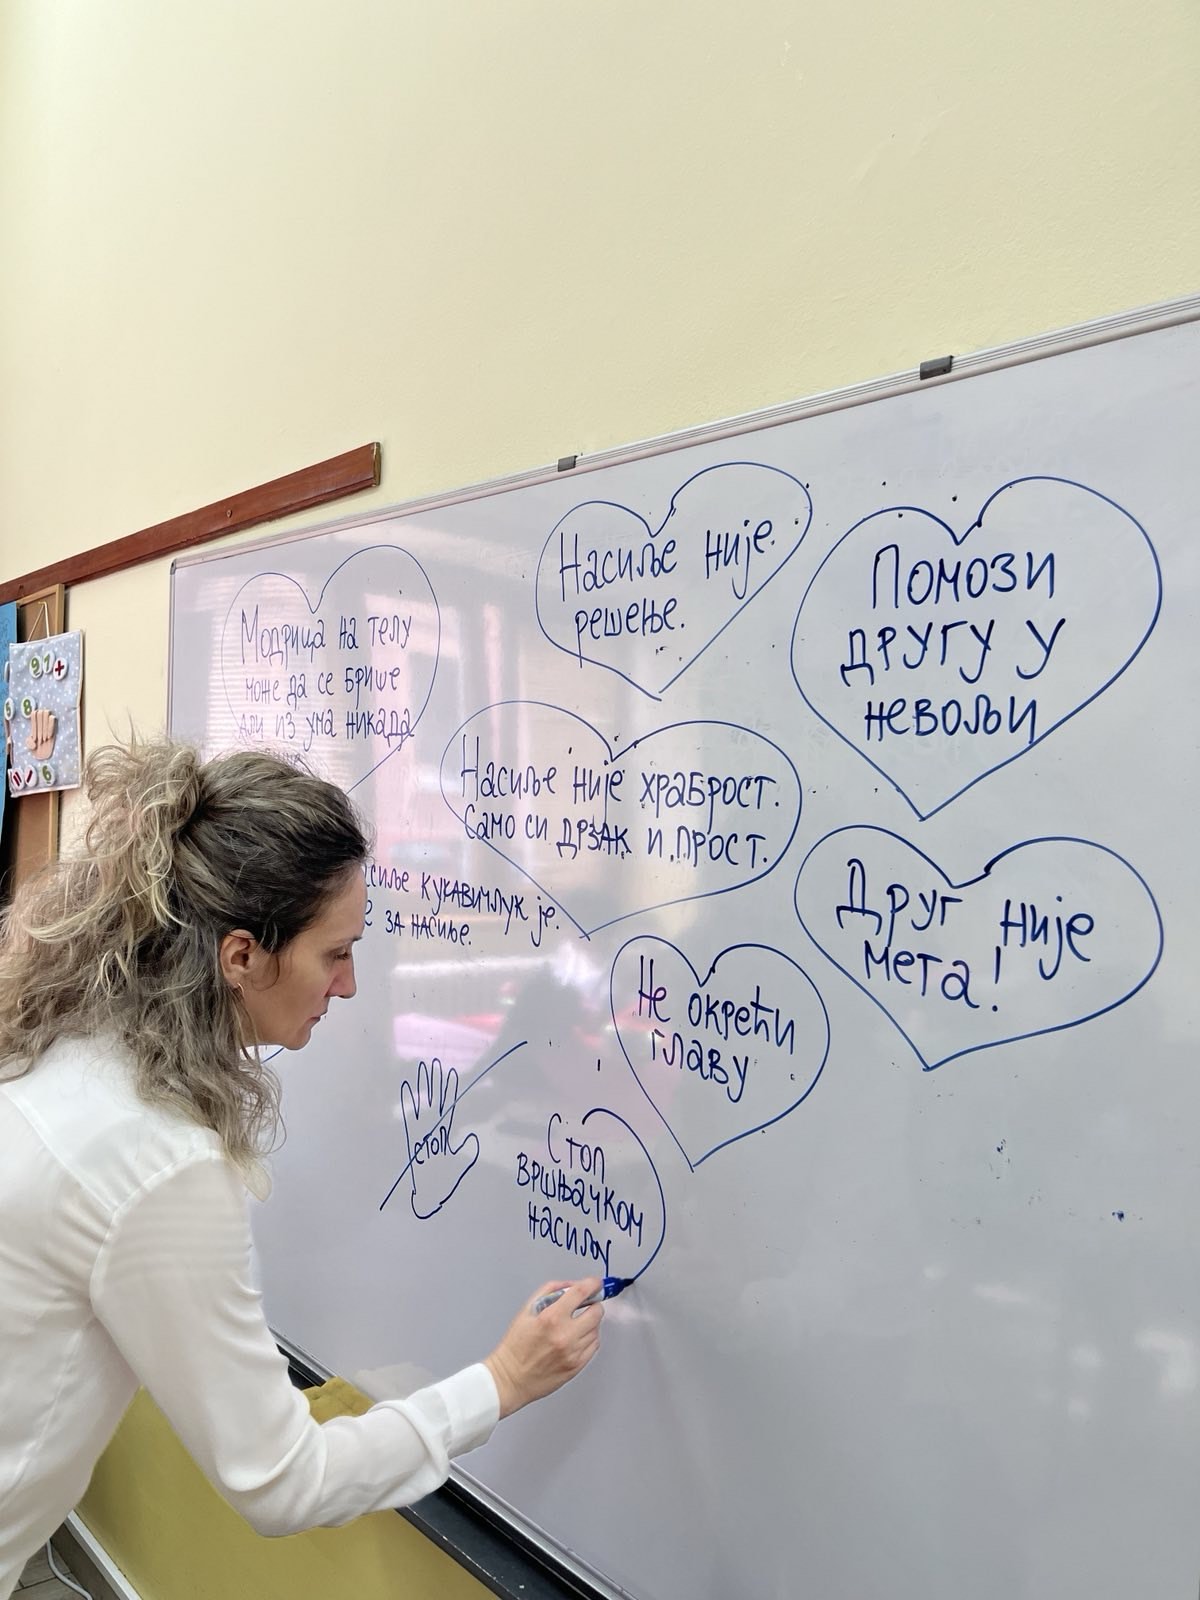 Модрица на телу
може да се брише
али из ума никада
Насиље није
решење.
Помози
другу у
невољи
Насиље није храброст.
Само си дрзак и прост.
кукавичлук је.
за насиље.
Друг није
мета!
Не окрећи
главу
стоп
Стоп
вршњачком
насиљу